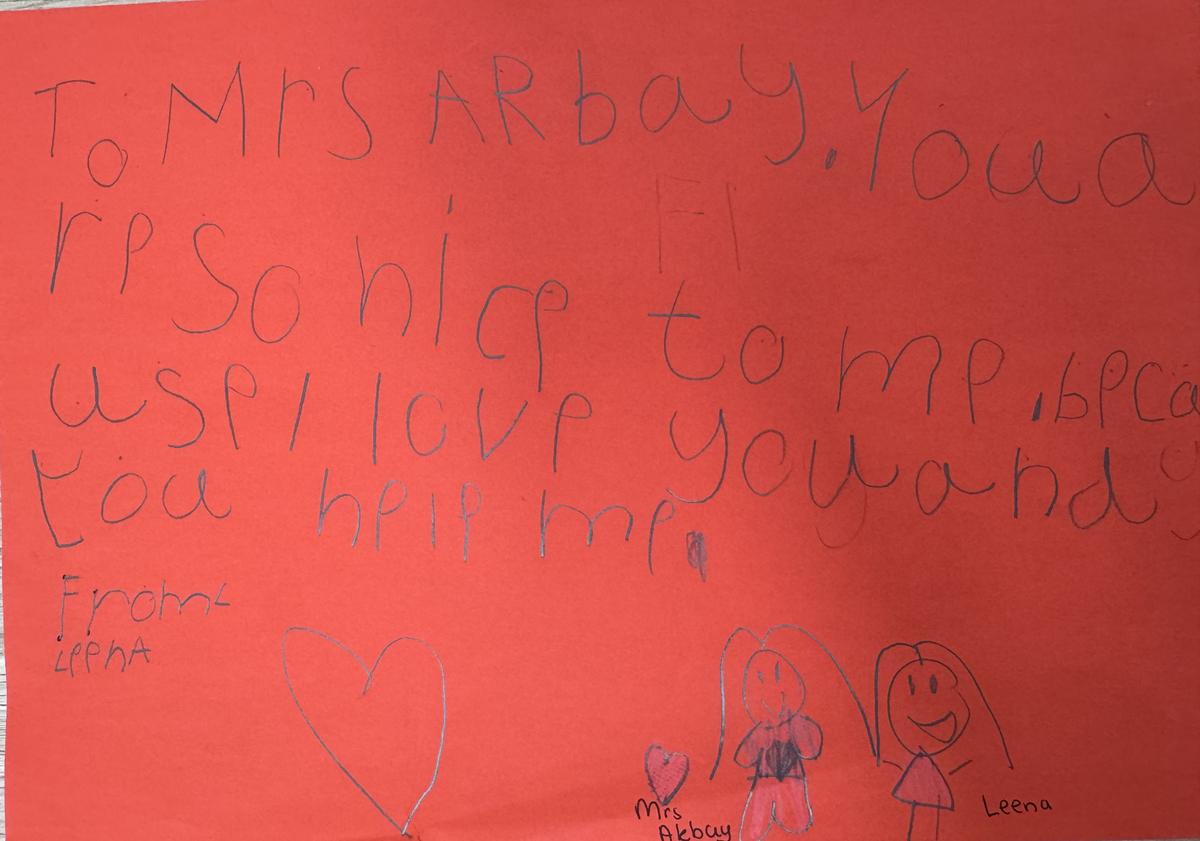 To Mrs ARbay. You a
re so nice to me. beca
use I love you and y
You help me.
From
LeenA
Mrs
Akbay
Leena